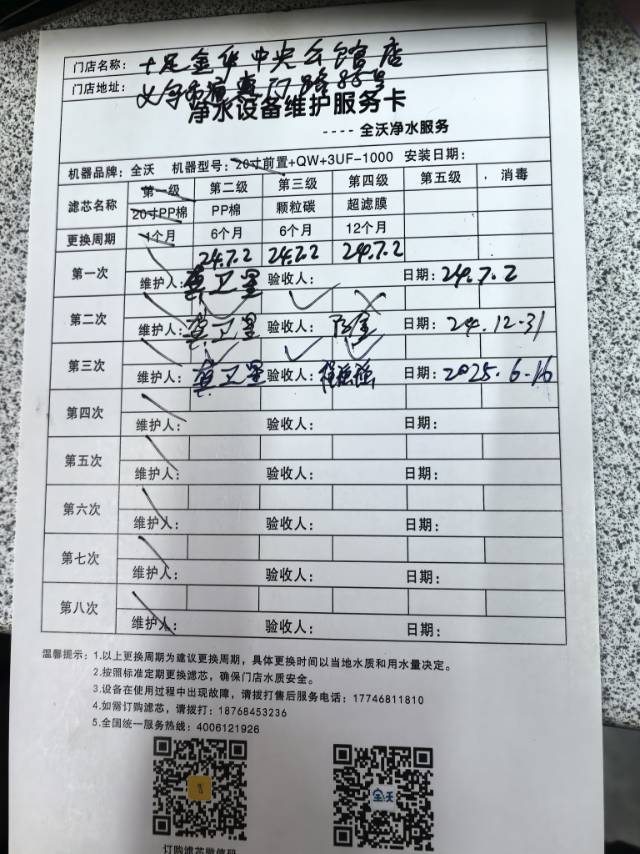 门店名称：十足金华中央公馆店
门店地址：
净水设备维护服务卡
---- 全沃净水服务
机器品牌：全沃 机器型号：20寸前置+QW+3UF-1000 安装日期：
滤芯名称 第一级 第二级 第三级 第四级 第五级 消毒
20寸PP棉 PP棉 颗粒碳 超滤膜
更换周期 1个月 6个月 6个月 12个月
第一次 24.7.2 24.7.2 24.7.2
维护人： 卫星 验收人： 日期：24.7.2
第二次
维护人： 卫星 验收人： 日期：24.12-31
第三次
维护人： 卫星 验收人： 日期：2025.6-16
第四次
维护人： 验收人： 日期：
第五次
维护人： 验收人： 日期：
第六次
维护人： 验收人： 日期：
第七次
维护人： 验收人： 日期：
第八次
维护人： 验收人： 日期：
温馨提示：1.以上更换周期为建议更换周期，具体更换时间以当地水质和用水量决定。
2.按照标准定期更换滤芯，确保门店水质安全。
3.设备在使用过程中出现故障，请拨打售后服务电话：17746811810
4.如需订购滤芯，请拨打：18768453236
5.全国统一服务热线：4006121926
全沃
订购滤芯微信码